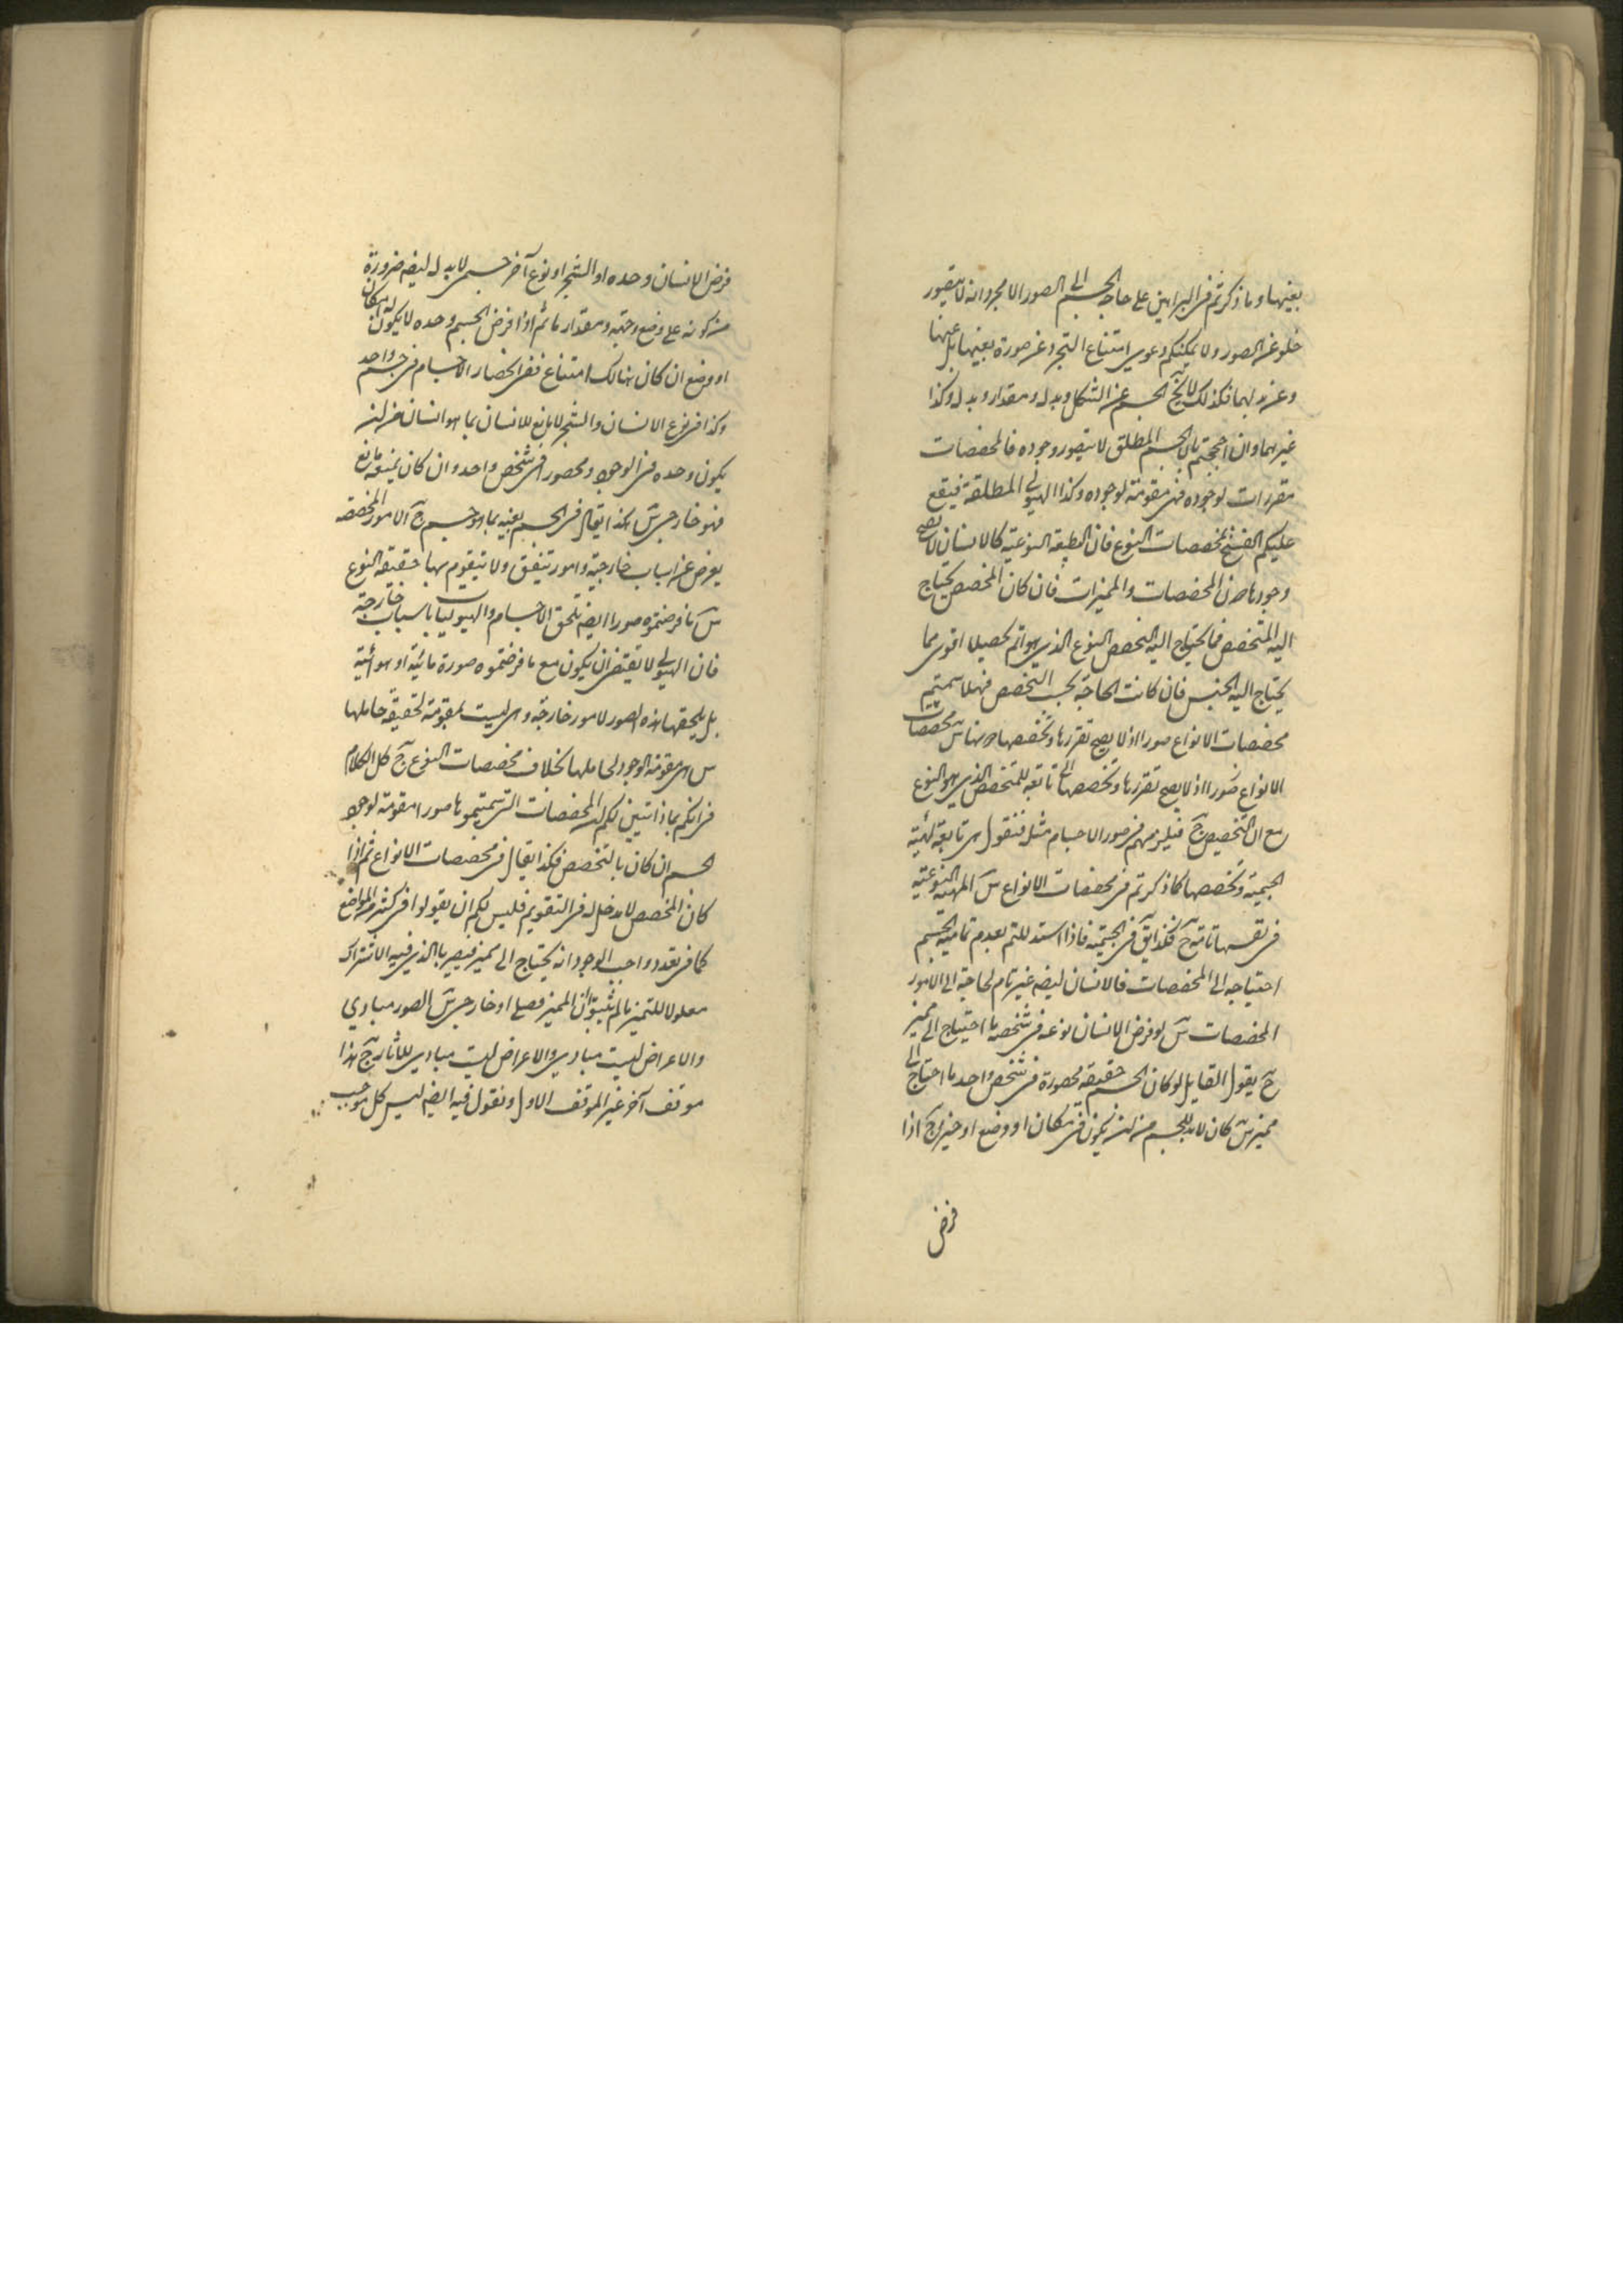 بعينها وما ذكرتم في البراهين على حاجة الجسم الى الصور الامجرد انه لا يتصور
خلو عن الصور ولا يمكنكم دعوى امتناع التجرد عن صورة بعينها بل عنها
وعن بدلها فكذلك لا يخ الجسم عن الشكل وبدله ومقدار وبدله وكذا
غيرهما وان احتججتم بان الجسم المطلق لا يتصور وجوده فالمخصصات
مقررات لوجوده فهي مقومة لوجوده وكذا الهيولى المطلقة فيقع
عليكم الفسخ بمخصصات النوع فان الطبيعة النوعية كالانسان لا يصح
وجودها دون المخصصات والمميزات فان كان المخصص يحتاج
اليه المتخصص فما يحتاج اليه لتخصص النوع الذي هو اتم تحصيلا اقوى مما
يحتاج اليه الجنس فان كانت الحاجة بحسب التخصص فهلا سميتم
مخصصات الانواع صورا اذ لا يصح تقررها وتخصصها دونها س مخصصات
الانواع صورا اذ لا يصح تقررها وتخصصها انها تابعة للمتخصص الذي هو النوع
مع ان التخصيص ج فيلزمهم في صور الاجسام مثله فنقول هي تابعة لهيئة
الجسمية وتخصصها كما ذكرتم في مخصصات الانواع س المهية النوعية
في نفسها تامة ج فكذا يق في الجسمية فاذا استدللتم بعدم تمامية الجسم
احتياجه الى المخصصات فالانسان ايضه غير تام لحاجته الى الامور
المخصصات س لو فرض الانسان نوعه في شخصه ما احتياج الى مميز
ج يقول القايل لو كان الجسم حقيقة محصورة في شخص واحد ما احتاج الى
مميز س كان لابد للجسم من ان يكون في مكان او وضع او حيز ج وكذا اذا
فرض
فرض الانسان وحده او الشجر او نوع آخر جسمي لابد له ايضه ضرورة
من كونه على وضع وجهة ومقدار ما ثم اذا فرض الجسم وحده لا يكون له مكان
او وضع ان كان هنالك امتناع ففي انحصار الاجسام في جسم واحد
وكذا في نوع الانسان والشجر لا مانع للانسان بما هو انسان من ان
يكون وحده في الوجود ومحصورا في شخص واحد وان كان يمنعه مانع
فهو خارجي س هكذا يقال في الجسم بعينه بما هو جسم ج الامور المخصصه
يعرض عن اسباب خارجية وامور تتفق ولا يتقوم بها حقيقة النوع
س ما فرضتموه صورا ايضه تلحق الاجسام والهيوليات باسباب خارجة
فان الهيولى لا تقتضى ان يكون مع ما فرضتموه صورة مائية او هوائية
بل يلحقها هذه الصور لامور خارجة وهي ليست بمقومة لحقيقة حاملها
س هي مقومة لوجود لحاملها بخلاف مخصصات النوع ج كل الكلام
في انكم بماذا تبين لكم ان المخصصات التي سميتموها صورا مقومة لوجود
الجسم ان كان بالتخصص فكذا يقال في مخصصات الانواع ثم اذا
كان المخصص لا مدخل له في التقويم فليس لكم ان يقولوا في كثير من المواضع
كما في تعدد واجب الوجود انه يحتاج الى مميز فيصير ما الذي فيه الاشتراك
معلولا للتميز ما لم تثبتوا ان المميز فصلي او خارجي س الصور مبادي
والاعراض ليست مبادي والاعراض ليست مبادي للآثار ج هذا
موقف آخر غير الموقف الاول ونقول فيه ايضه ليس كل موجب